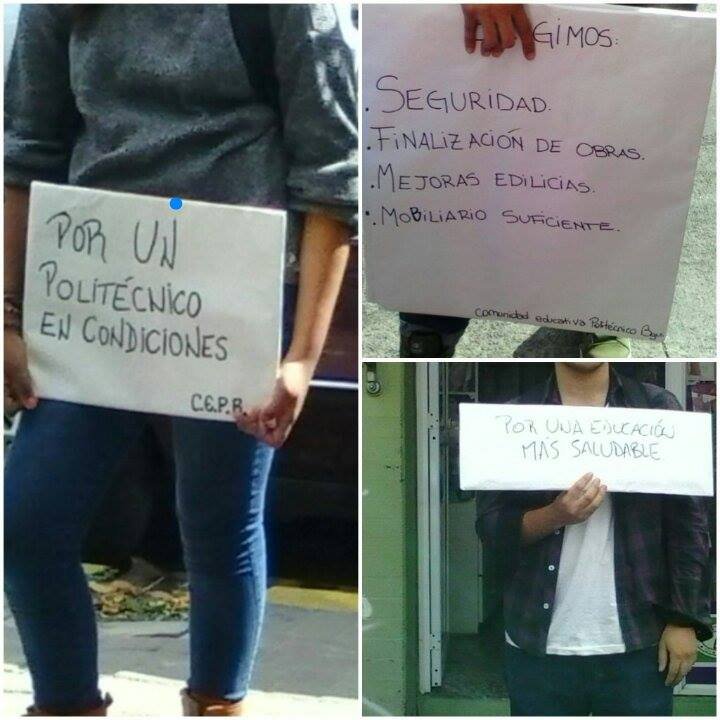 POR UN
POLITÉCNICO
EN CONDICIONES
C.E.P.B.
GIMOS:
. SEGURIDAD.
. FINALIZACIÓN DE OBRAS.
. MEJORAS EDILICIAS.
. MOBILIARIO SUFICIENTE.
Comunidad educativa Politécnico
POR UNA EDUCACIÓN
MÁS SALUDABLE